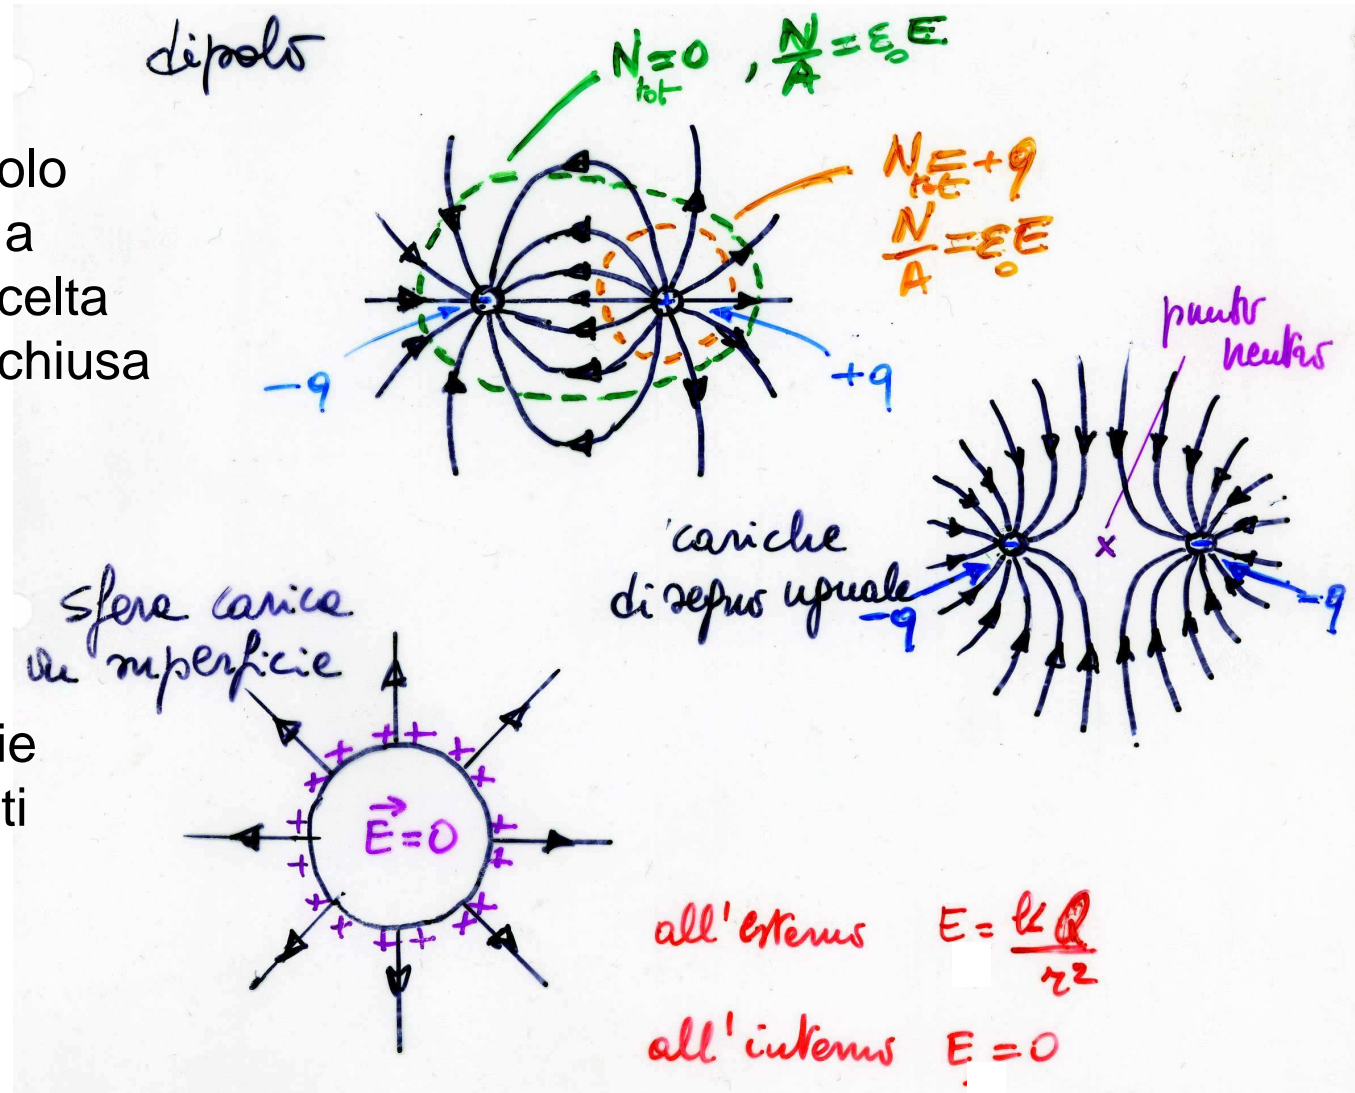 dipolo
N = 0 , N/A = ε₀E
tot
olo
a
celta
chiusa
N = +q
tot
N/A = ε₀E
-
+
-q
+q
punto
neutro
x
cariche
di segno uguale
-
-
-q
-q
sfera carica
in superficie
ie
ti
+ + + + + + + + + + + + + + + + + +
E⃗ = 0
all'esterno E = kQ/r²
all'interno E = 0